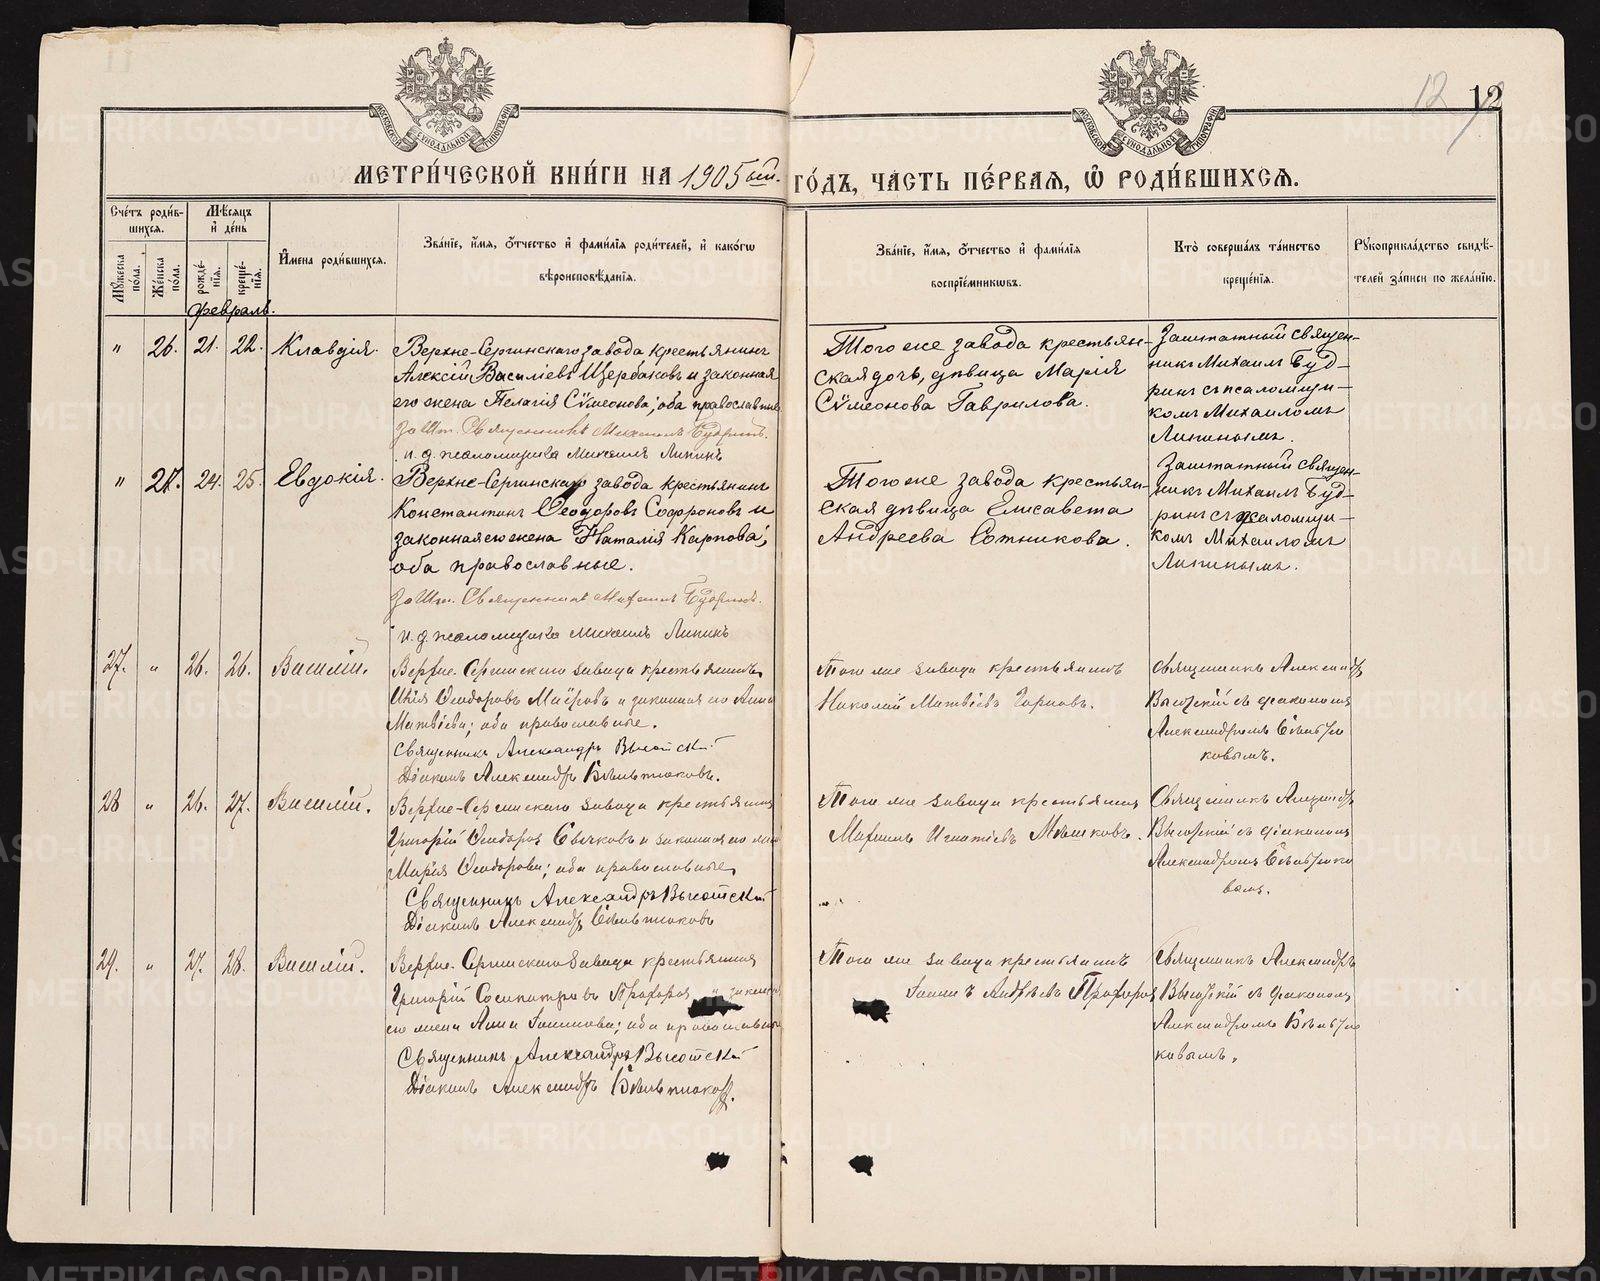 12 12
МЕТРИ́ЧЕСКОЙ КНИ́ГИ НА 1905 ый.
ГО́ДЪ, ЧА́СТЬ ПЕ́РВАЯ, Ѿ РОДИ́ВШИХСЯ.
Сче́тъ роди́в-
шихся.
Мѣ́сяцъ
и де́нь
Му́жеска по́ла.
Же́нска по́ла.
рожде́-
нїя.
креще́-
нїя.
И҆мена роди́вшихся.
Зва́нїе, и҆́мя, ѻ҆́тчество и҆ фами́лїя роди́телей, и҆ како́гѡ
вѣроисповѣ́данїя.
Зва́нїе, и҆́мя, ѻ҆́тчество и҆ фами́лїя
воспрїе́мниковъ.
Кто̀ соверша́лъ та́инство
креще́нїя.
Рукоприкла́дство свидѣ́-
телей за́писи по жела́нїю.
февраль.
" 26. 21. 22. Клавдія.
Верхне-Сергинскаго завода крестьянинъ
Алексій Василіевъ Щербаковъ и законная
его жена Пелагія Сѵмеонова; оба православные
Зашт. Священникъ Михаилъ Будринъ.
и. д. псаломщика Михаилъ Липинъ
Того же завода крестьян-
ская дочь, дѣвица Марія
Сѵмеонова Гаврилова.
Заштатный священ-
никъ Михаилъ Буд-
ринъ съ псаломщи-
комъ Михаиломъ
Липинымъ.
" 27. 24. 25. Евдокія.
Верхне-Сергинскаго завода крестьянинъ
Константинъ Ѳеодоровъ Софроновъ и
законная его жена Наталія Карпова;
оба православные.
Зашт. Священникъ Михаилъ Будринъ.
и. д. псаломщика Михаилъ Липинъ
Того же завода крестьян-
ская дѣвица Елисавета
Андреева Сотникова.
Заштатный священ-
никъ Михаилъ Буд-
ринъ съ псаломщи-
комъ Михаиломъ
Липинымъ.
27. " 26. 26. Василій.
Верхне-Сергинскаго завода крестьянинъ
Ѳеодоровъ и законная его Анна
Матвѣева; оба православные.
Священникъ Александръ Высотскій
Діаконъ Александръ Бѣльтюковъ.
Того же завода крестьянинъ
Николай Матвѣевъ
Священникъ Александръ
Высотскій съ діакономъ
Александромъ Бѣльтю-
ковымъ.
28 " 26. 27. Василій.
Верхне-Сергинскаго завода крестьянинъ
Григорій Ѳеодоровъ Сычковъ и законная его жена
Марія Ѳеодорова; оба православные
Священникъ Александръ Высотскій
Діаконъ Александръ Бѣльтюковъ
Того же завода крестьянинъ
Максимъ Игнатіевъ Мѣшковъ.
Священникъ Александръ
Высотскій съ діакономъ
Александромъ Бѣльтюко
вымъ.
29. " 27. 28. Василій.
Верхне-Сергинскаго завода крестьянинъ
Григорій Сосипатровъ Прохоровъ и законная
его жена Анна Іоаннова; оба православные
Священникъ Александръ Высотскій
Діаконъ Александръ Бѣльтюковъ.
Того же завода крестьянинъ
Іоаннъ Андреевъ Прохоровъ
Священникъ Александръ
Высотскій съ діакономъ
Александромъ Бѣльтю
ковымъ.